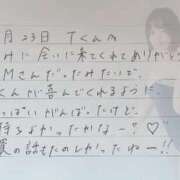 月23日 Tくん M
に会いに来てくれてありがとう
Mさんだったみたいで、
くんが喜んでくれるように
っぱいがんばったけど、
持ちよかったかなー？♡
の話もたのしかったねー!!